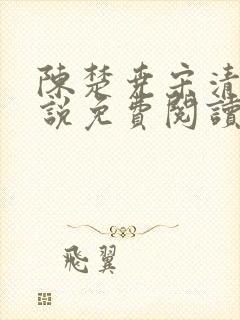 陳楚堯宋清
說免費閱讀
飛翼